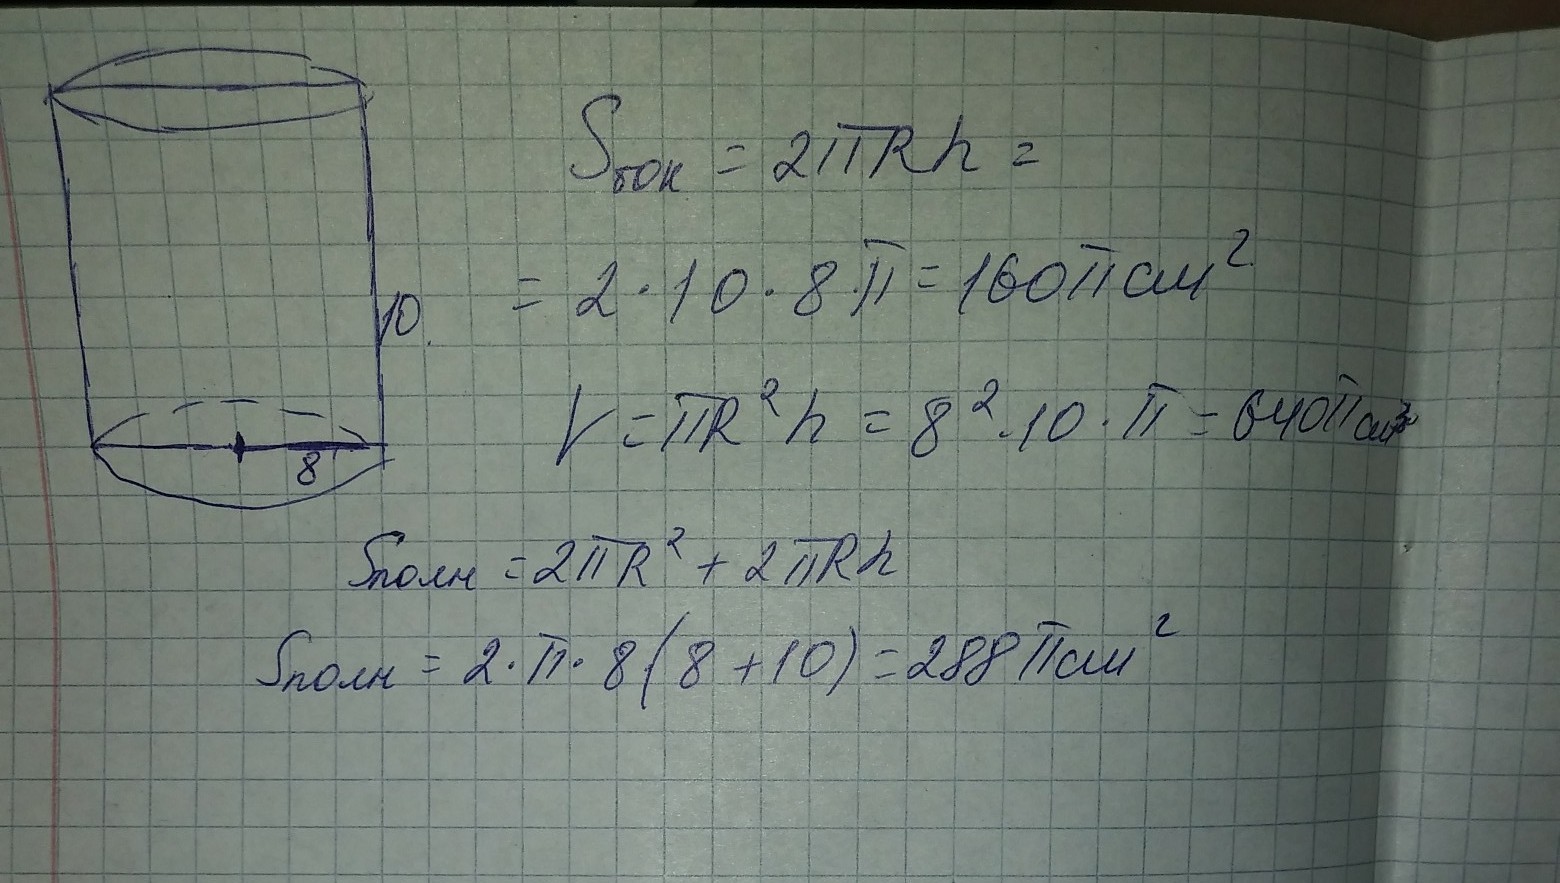 Sбок = 2πRh =
= 2·10·8·π = 160π см²
10
V = πR²h = 8²·10·π = 640π см³
8
Sполн = 2πR² + 2πRh
Sполн = 2·π·8(8+10) = 288π см²